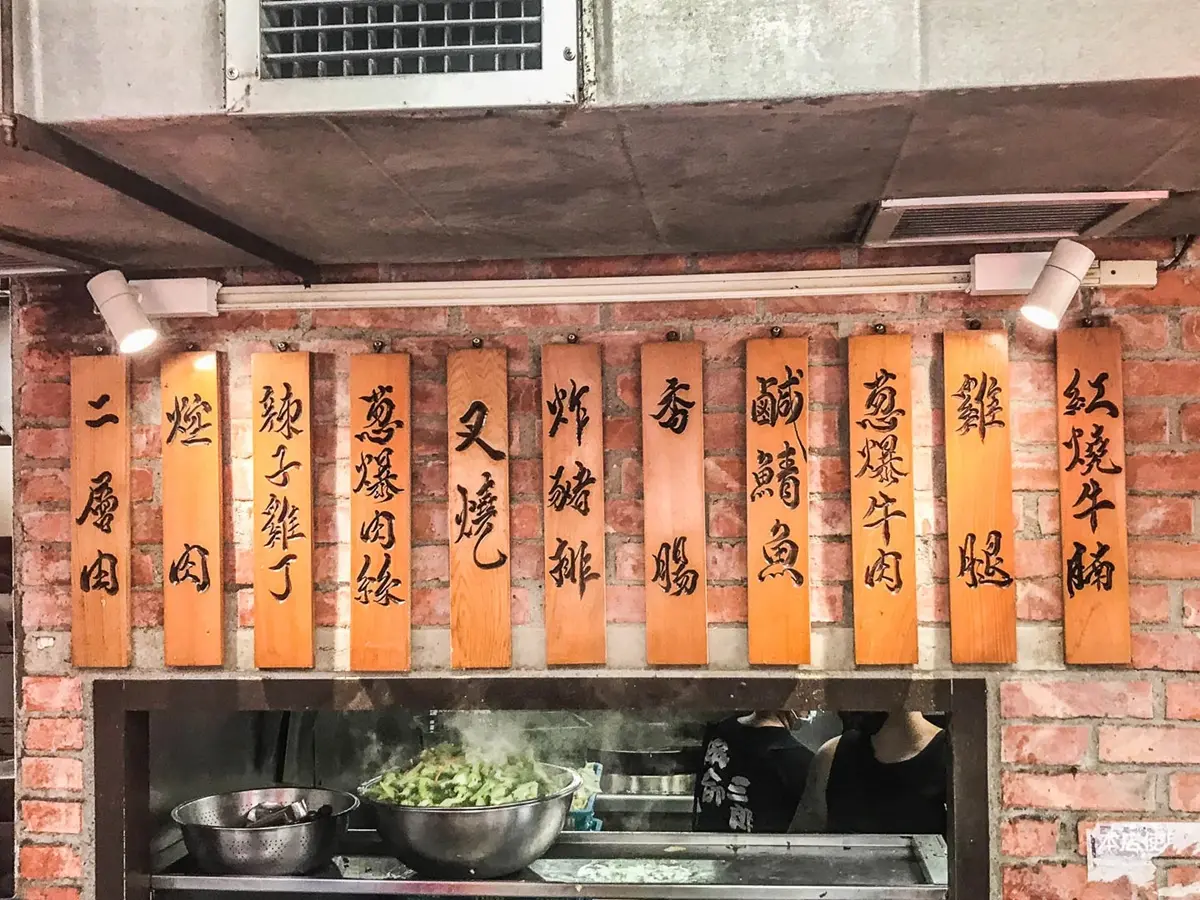 紅燒牛腩
雞腿
蔥爆牛肉
鹹鯖魚
香腸
炸豬排
叉燒
蔥爆肉絲
辣子雞丁
焢肉
二層肉
本店使